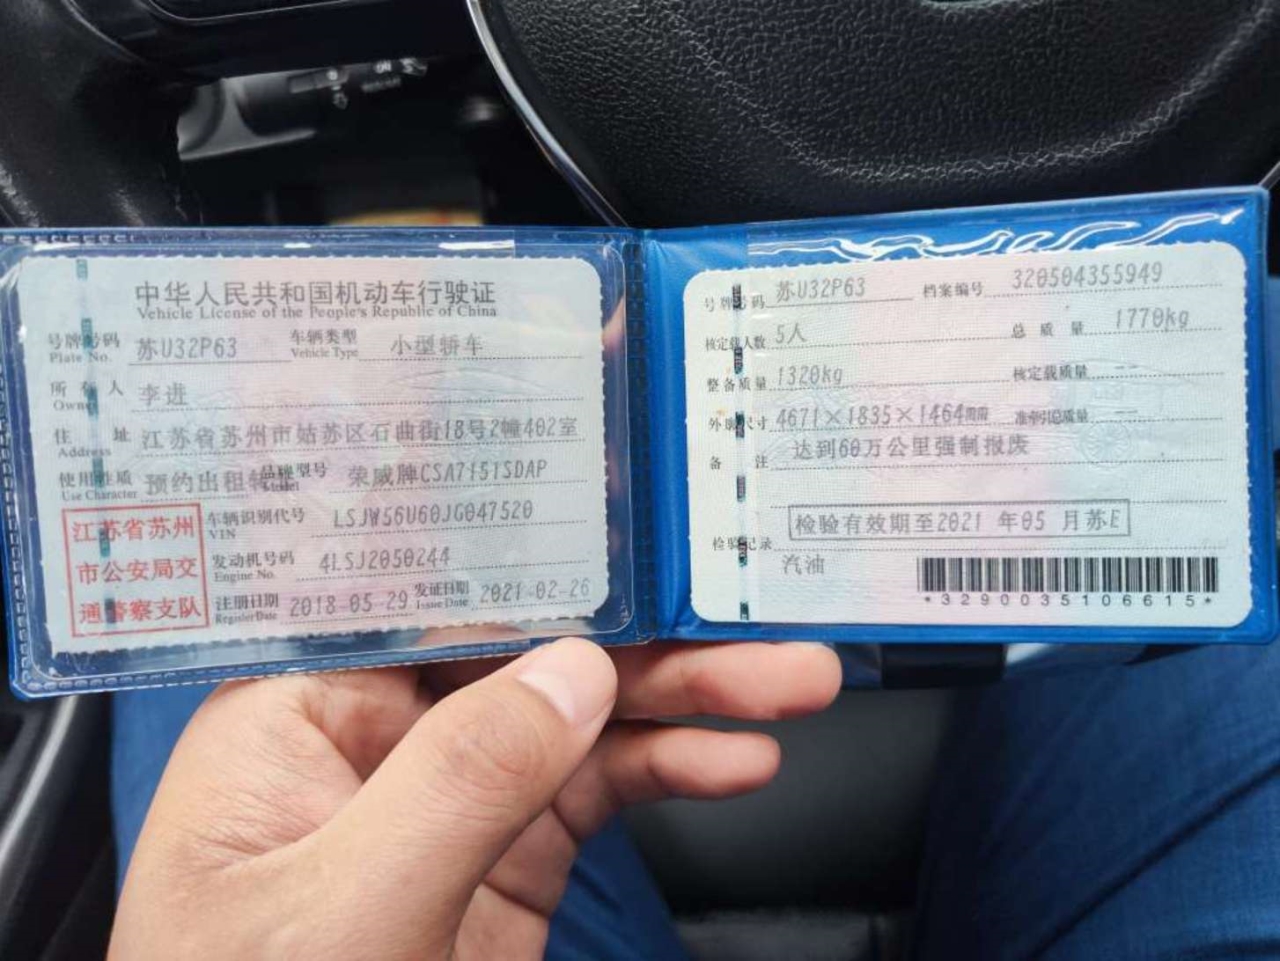 中华人民共和国机动车行驶证
Vehicle License of the People's Republic of China
号牌号码 苏U32P63 车辆类型 小型轿车
Plate No. Vehicle Type
所有人 李进
Owner
住址 江苏省苏州市姑苏区石曲街18号2幢402室
Address
使用性质 预约出租转非 品牌型号 荣威牌CSA7151SDAP
Use Character Model
江苏省苏州
市公安局交
通警察支队
车辆识别代号 LSJW56U60JG047520
VIN
发动机号码 4LSJ2050244
Engine No.
注册日期 2018-05-29 发证日期 2021-02-26
Register Date Issue Date
号牌号码 苏U32P63 档案编号 320504355949
核定载人数 5人 总质量 1770kg
整备质量 1320kg 核定载质量 --
外廓尺寸 4671×1835×1464mm 准牵引总质量 --
备注 达到60万公里强制报废
检验有效期至2021 年05 月苏E
检验记录
汽油
*3290035106615*